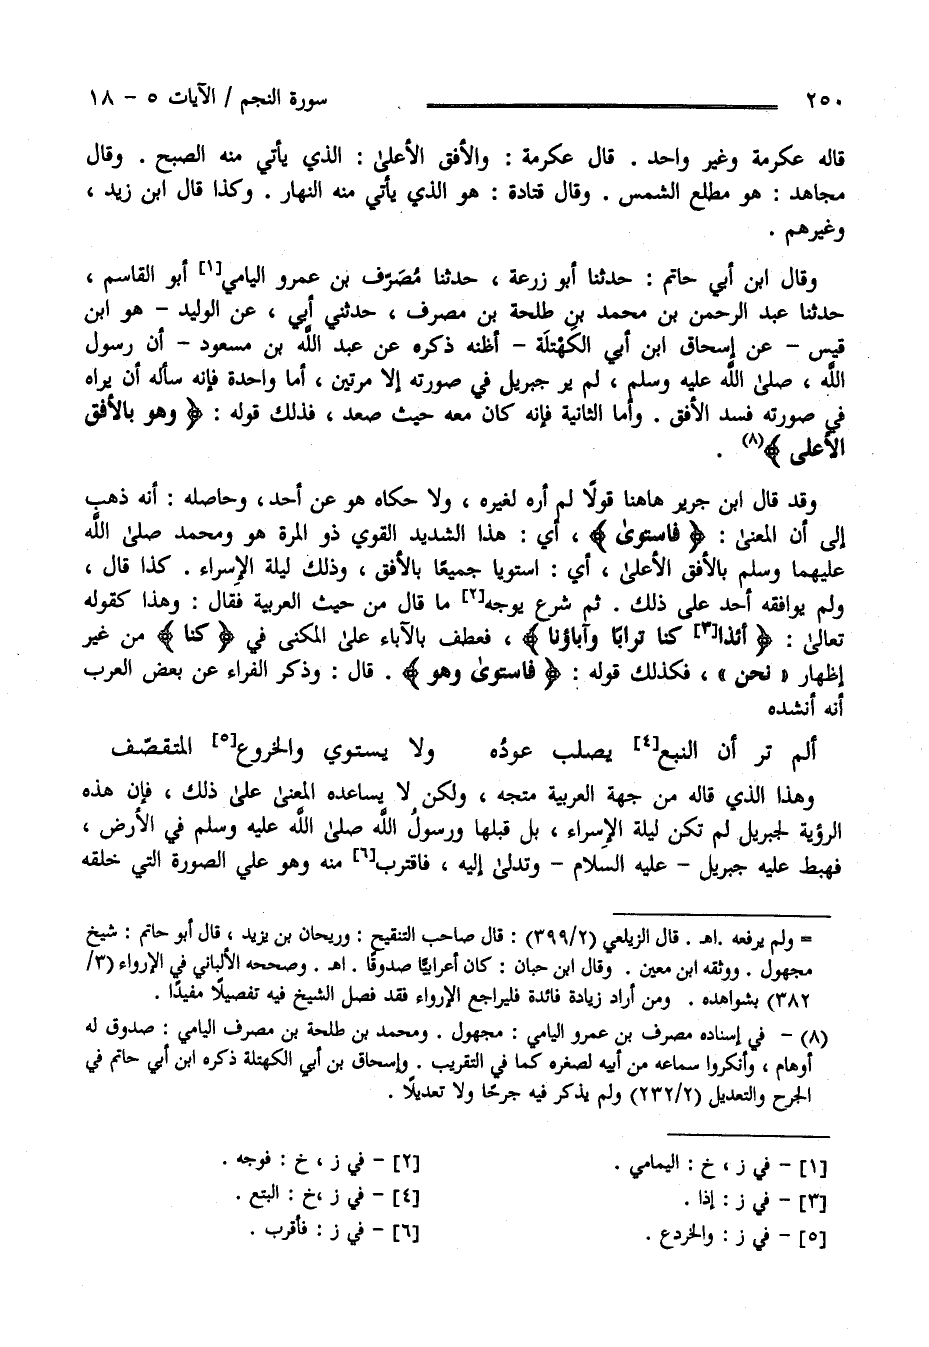 ٢٥٠ سورة النجم / الآيات ٥ - ١٨
قاله عكرمة وغير واحد . قال عكرمة : والأفق الأعلىٰ : الذي يأتي منه الصبح . وقال
مجاهد : هو مطلع الشمس . وقال قتادة : هو الذي يأتي منه النهار . وكذا قال ابن زيد ،
وغيرهم .
وقال ابن أبي حاتم : حدثنا أبو زرعة ، حدثنا مُصَرّف بن عمرو اليامي[١] أبو القاسم ،
حدثنا عبد الرحمن بن محمد بن طلحة بن مصرف ، حدثني أبي ، عن الوليد - هو ابن
قيس - عن إسحاق ابن أبي الكَهْتلَة - أظنه ذكره عن عبد اللَّه بن مسعود - أن رسول
اللَّه ، صلىٰ اللَّه عليه وسلم ، لم ير جبريل في صورته إلا مرتين ، أما واحدة فإنه سأله أن يراه
في صورته فسد الأفق . وأما الثانية فإنه كان معه حيث صعد ، فذلك قوله : ﴿ وهو بالأفق
الأعلى ﴾(٨) .
وقد قال ابن جرير هاهنا قولًا لم أره لغيره ، ولا حكاه هو عن أحد، وحاصله : أنه ذهب
إلى أن المعنىٰ : ﴿ فاستوىٰ ﴾ ، أي : هذا الشديد القوي ذو المرة هو ومحمد صلىٰ اللَّه
عليهما وسلم بالأفق الأعلىٰ ، أي : استويا جميعًا بالأفق ، وذلك ليلة الإسراء . كذا قال ،
ولم يوافقه أحد على ذلك . ثم شرع يوجه[٢] ما قال من حيث العربية فقال : وهذا كقوله
تعالىٰ : ﴿ أئذا[٣] كنا ترابًا وآباؤنا ﴾ ، فعطف بالآباء علىٰ المكنى في ﴿ كنا ﴾ من غير
إظهار « نحن » ، فكذلك قوله : ﴿ فاستوىٰ وهو ﴾ . قال : وذكر الفراء عن بعض العرب
أنه أنشده
ألم تر أن النبع[٤] يصلب عودُه ولا يستوي والخروع[٥] المتقصّف
وهذا الذي قاله من جهة العربية متجه ، ولكن لا يساعده المعنىٰ علىٰ ذلك ، فإن هذه
الرؤية لجبريل لم تكن ليلة الإسراء ، بل قبلها ورسولُ اللَّه صلىٰ اللَّه عليه وسلم في الأرض ،
فهبط عليه جبريل - عليه السلام - وتدلىٰ إليه ، فاقترب[٦] منه وهو علي الصورة التي خلقه
= ولم يرفعه .اهـ . قال الزيلعي (٣٩٩/٢) : قال صاحب التنقيح : وريحان بن يزيد ، قال أبو حاتم : شيخ
مجهول . ووثقه ابن معين . وقال ابن حبان : كان أعرابيًّا صدوقًا . اهـ . وصححه الألباني في الإرواء (٣/
٣٨٢) بشواهده . ومن أراد زيادة فائدة فليراجع الإرواء فقد فصل الشيخ فيه تفصيلًا مفيدًا .
(٨) - في إسناده مصرف بن عمرو اليامي : مجهول . ومحمد بن طلحة بن مصرف اليامي : صدوق له
أوهام ، وأنكروا سماعه من أبيه لصغره كما في التقريب . وإسحاق بن أبي الكهتلة ذكره ابن أبي حاتم في
الجرح والتعديل (٢٣٢/٢) ولم يذكر فيه جرحًا ولا تعديلًا .
[١] - في ز ، خ : اليمامي . [٢] - في ز ، خ : فوجه .
[٣] - في ز : إذا . [٤] - في ز ،خ : البتع .
[٥] - في ز : والخردع . [٦] - في ز : فأقرب .